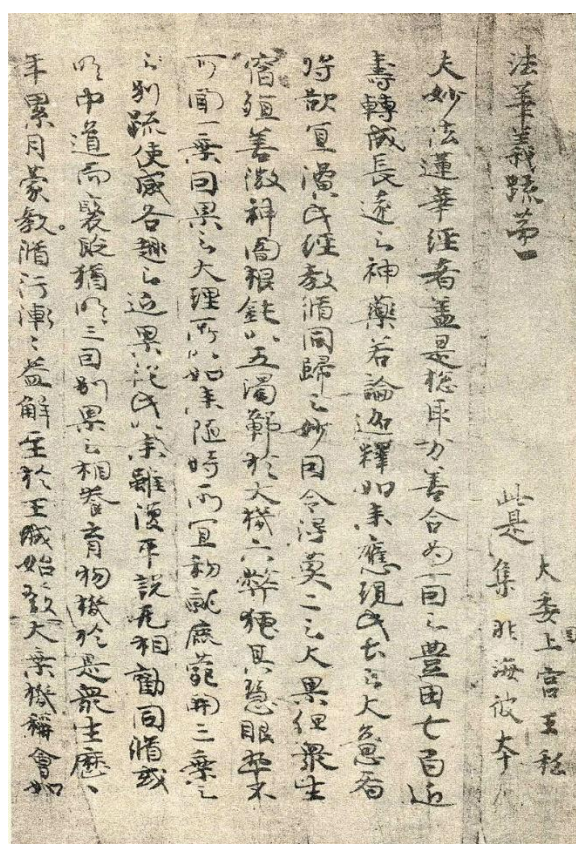 法華義疏第一
此是
大委上宮王私
集非海彼本
夫妙法蓮華經者蓋是惣取万善合為一因之豊田七百近
壽轉成長遠之神藥若論迦釋如来應現此土之大意者
将欲宜演此經教脩同歸之妙因令得莫二之大果但衆生
宿殖善微神闇根鈍以五濁鄣於大機六弊掩其慧眼卒不
可聞一乗因果之大理所以如来随時所宜初就鹿菀開三乗之
之別疏使感各趣之近果従此以来雖復平説无相勧同脩或
明中道而褒貶猶明三因別果之相養育物機於是衆生歴〻
年累月蒙教脩行漸〻益解至於王城始發大乗機稱會如